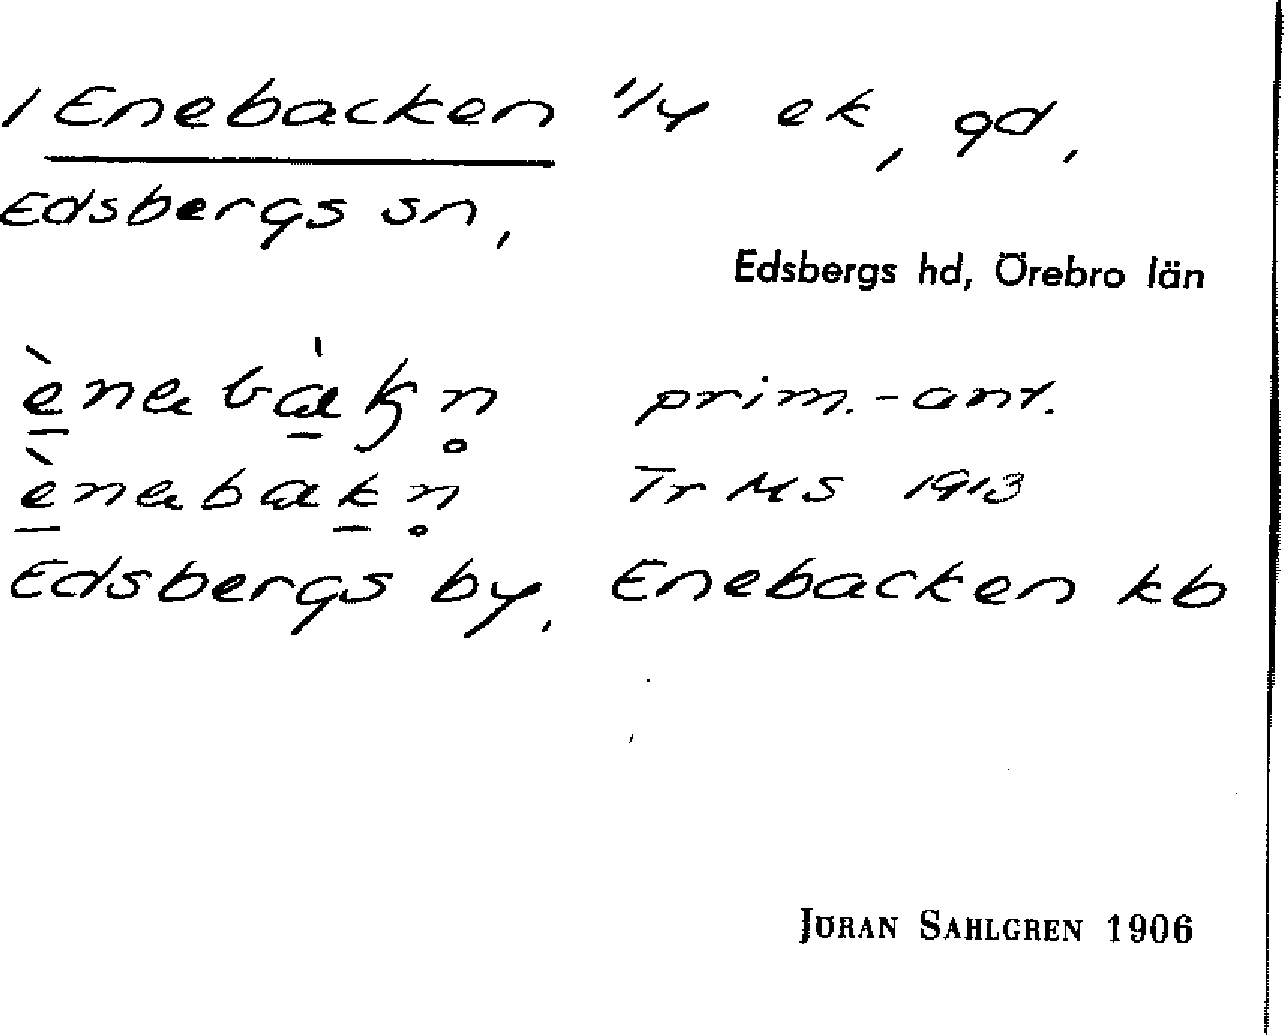 1 Enebacken 1/4 ek, gd,
Edsbergs sn,
Edsbergs hd, Örebro län
prim.-ant.
Tr MS 1913
Edsbergs by, Enebacken kb
JÖRAN SAHLGREN 1906